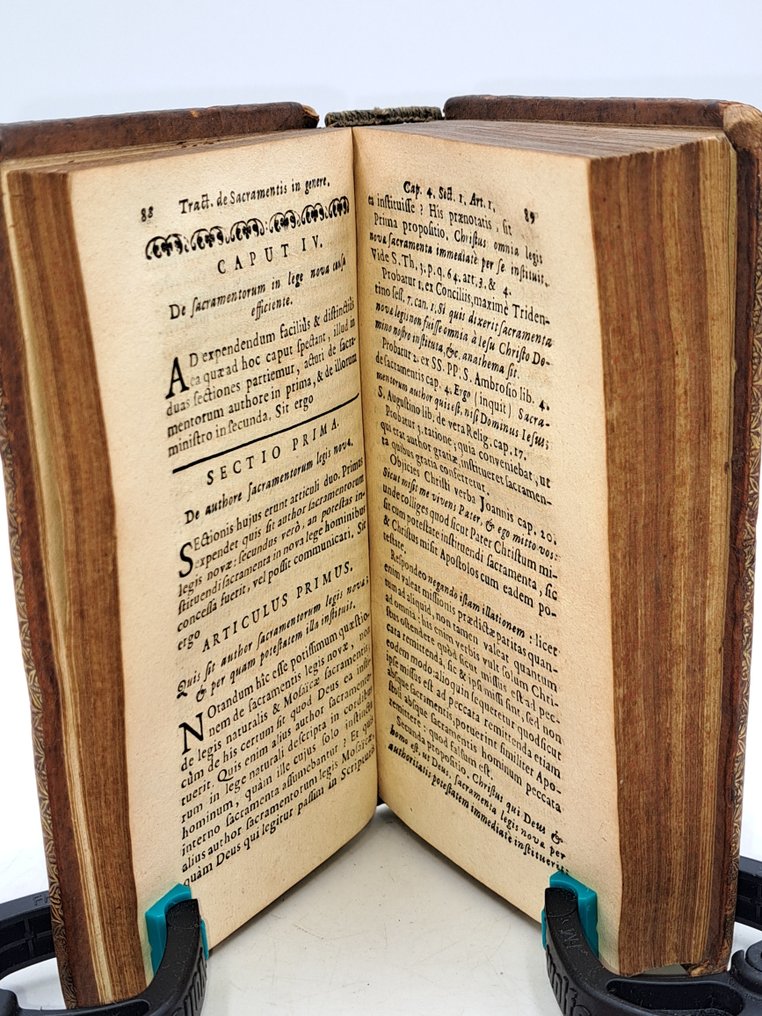 88 Tract. de Sacramentis in genere.
CAPUT IV.
De sacramentorum in lege nova causa
efficiente.
AD expendendum faciliùs & distinctiùs
ea quæ ad hoc caput spectant, illud in
duas sectiones partiemur, acturi de sacra-
mentorum authore in prima, & de illorum
ministro in secunda. Sit ergo
SECTIO PRIMA.
De authore sacramentorum legis novæ.
SEctionis hujus erunt articuli duo. Primus
expendet quis sit author sacramentorum
legis novæ: secundus verò, an potestas in-
stituendi sacramenta in nova lege hominibus
concessa fuerit, vel possit communicari. Sit
ergo
ARTICULUS PRIMUS.
Quis sit author sacramentorum legis novæ;
& per quam potestatem illa instituit.
NOtandum hîc esse potissimum quæstio-
nem de sacramentis legis novæ, non
de legis naturalis & Mosaicæ sacramentis;
cùm de his certum sit quod Deus ea insti-
tuerit. Quis enim alius author sacramento-
rum in lege naturali descripta in cordibus
hominum, quàm ille cujus solo instinctu
interno sacramenta assumebantur? Et quis
alius author sacramentorum legis Mosaicæ,
quàm Deus qui legitur passim in Scripturis
Cap. 4. Sect. 1. Art. 1. 89
ea instituisse? His prænotatis, sit
Prima propositio, Christus omnia legis
novæ sacramenta immediatè per se instituit.
Vide S. Th. 3. p. q. 64. art. 3. & 4.
Probatur 1. ex Conciliis, maximè Triden-
tino sess. 7. can. 1. Si quis dixerit sacramenta
novæ legis non fuisse omnia à Iesu Christo Do-
mino nostro instituta, &c. anathema sit.
Probatur 2. ex SS. PP. S. Ambrosio lib. 4.
de sacramentis cap. 4. Ergo (inquit) Sacra-
mentorum author quis est, nisi Dominus Iesus;
S. Augustino lib. de vera Relig. cap. 17.
Probatur 3. ratione, quia conveniebat, ut
qui erat author gratiæ institueret sacramen-
ta quibus gratia conferretur.
Objicies Christi verba Joannis cap. 20.
Sicut misit me vivens Pater, & ego mitto vos:
unde colliges quod sicut Pater Christum mi-
sit cum potestate instituendi sacramenta, sic
& Christus misit Apostolos cum eadem po-
testate.
Respondeo negando istam illationem: licet
enim valeat missionis prædictæ paritas quan-
tum ad aliquid, non tamen valeat quantum
ad omnia: his enim verbis vult solum Chri-
stus ostendere quòd sicut missus est ad pec-
cata remittenda, sic & ipsi missi sint, sed non
eodem modo: alioquin sequeretur quod sicut
ipse missus est ad peccata remittenda etiam
absque sacramentis, potuerint similiter Apo-
stoli absque sacramentis hominum peccata
remittere; quod falsum est.
Secunda propositio. Christus qui Deus &
homo est, ut Deus, sacramenta legis novæ per
authoritatis potestatem immediatè instituerit